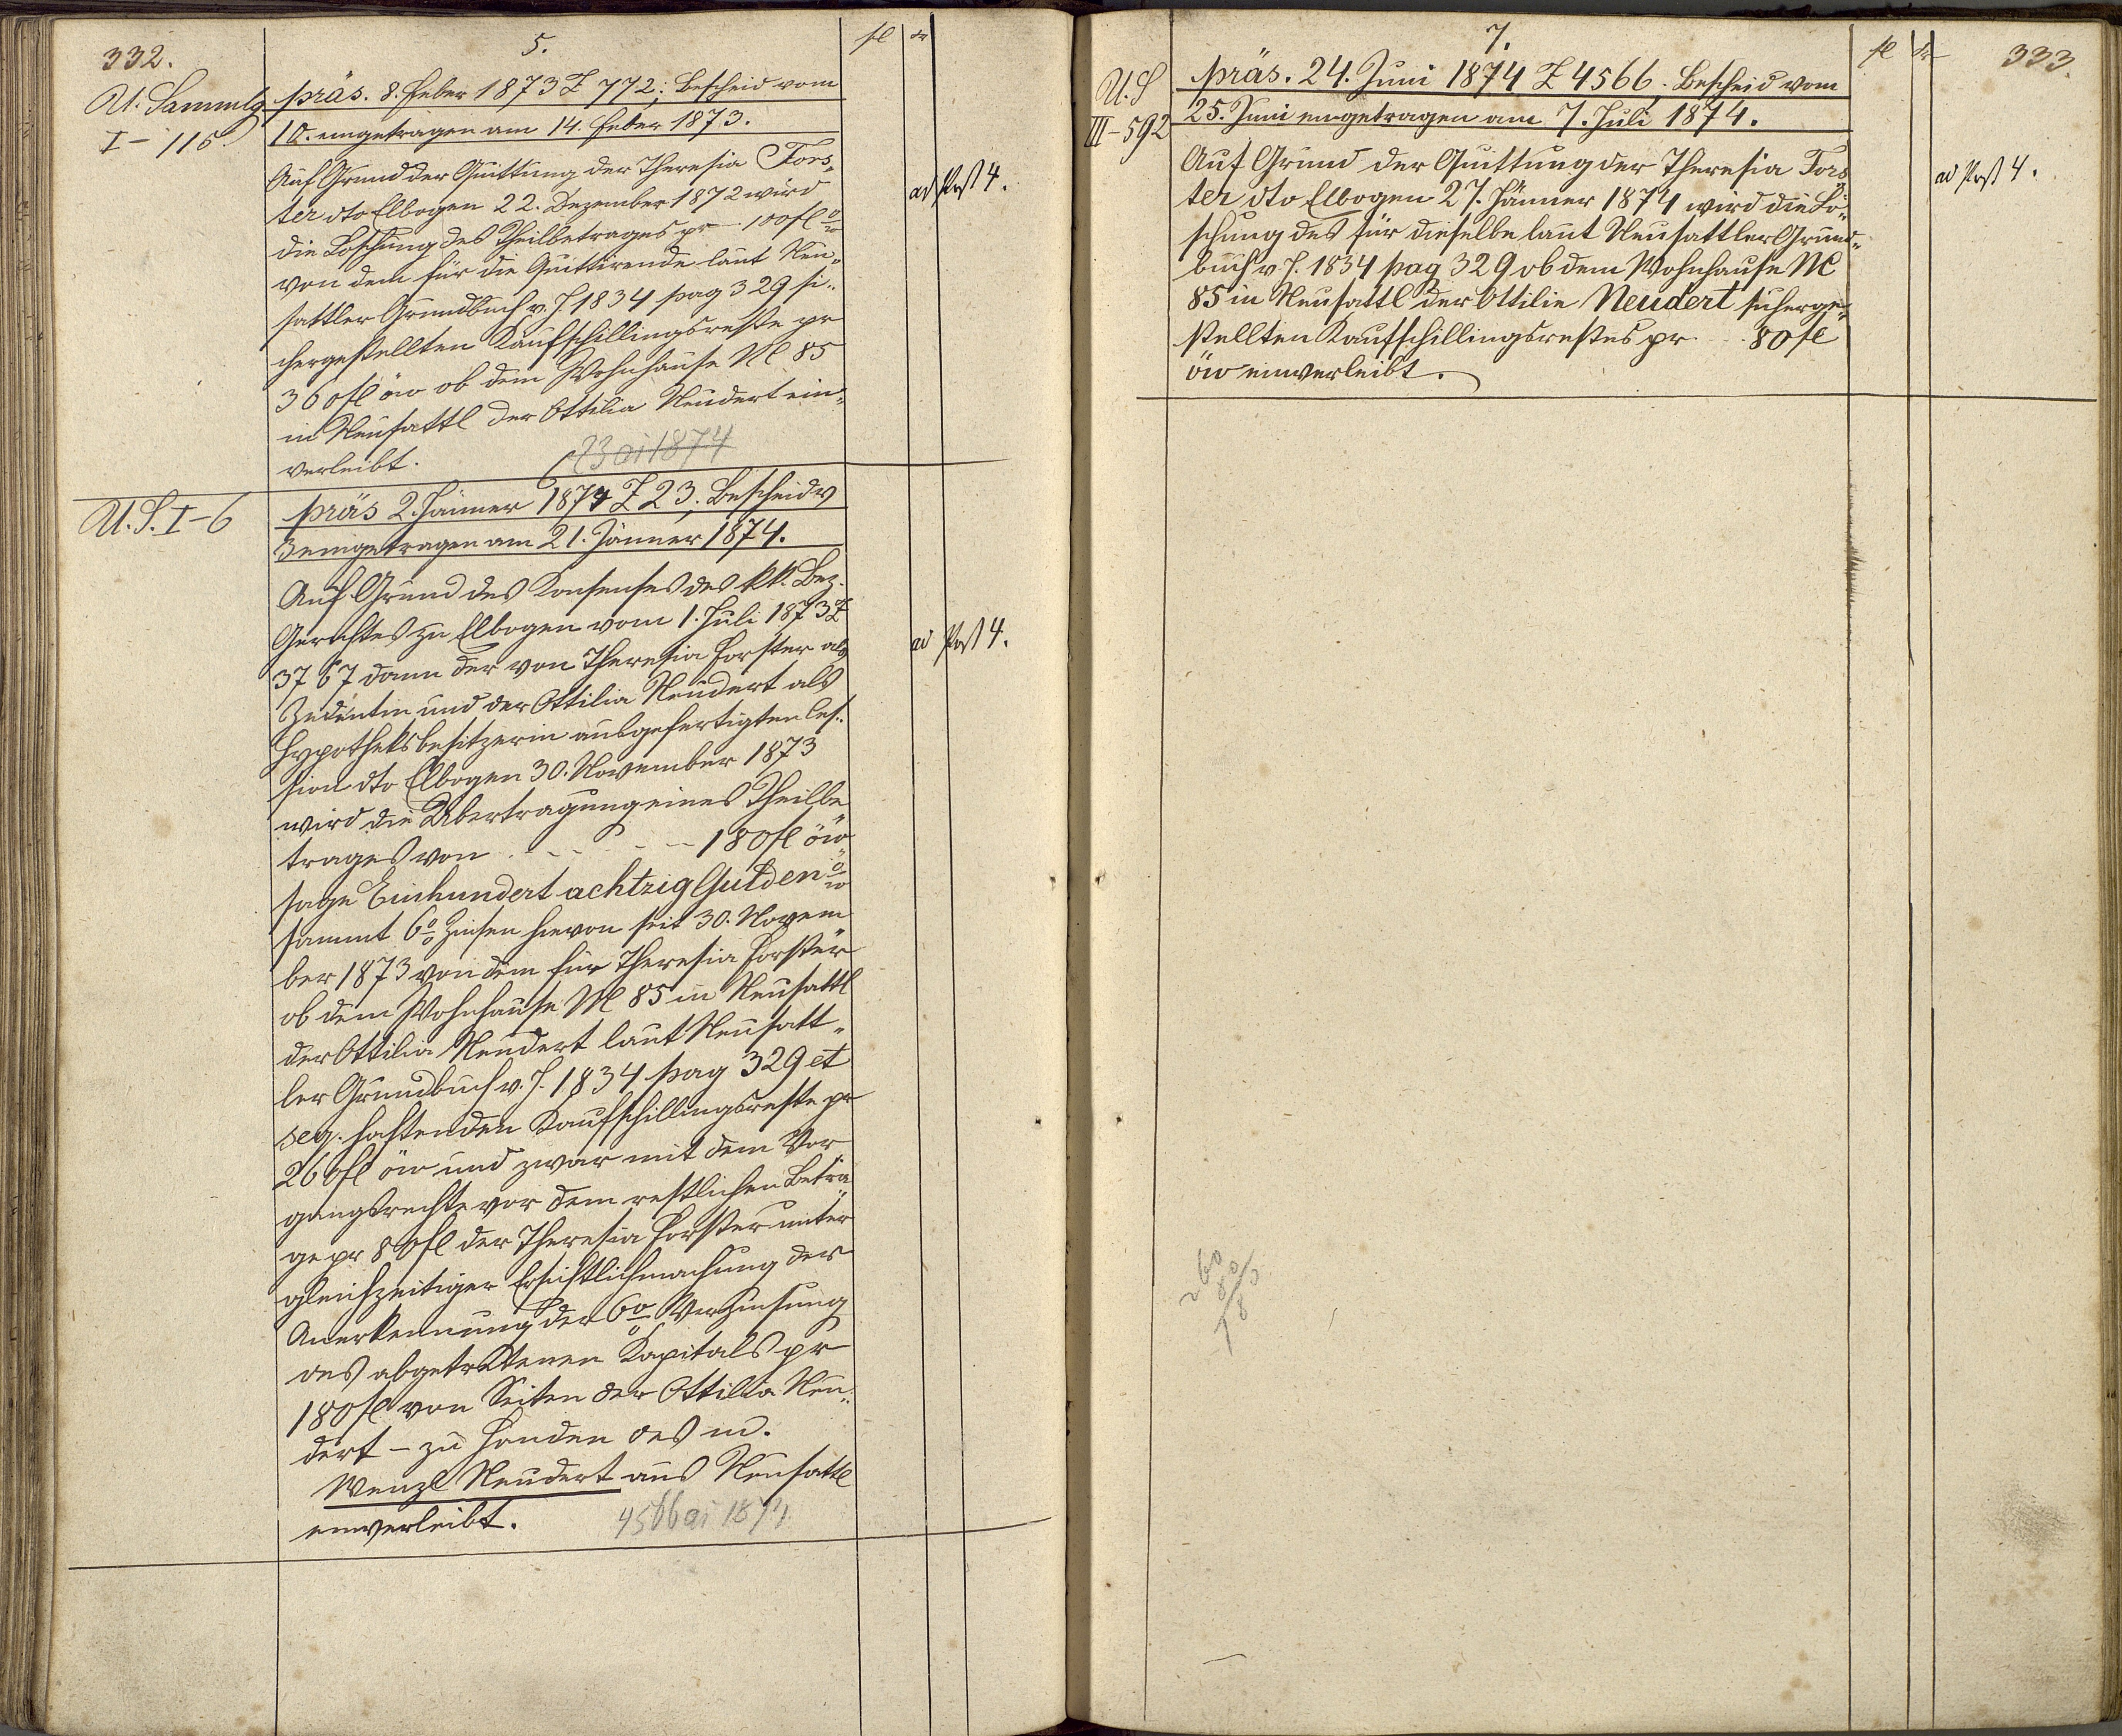 332.
5.
fl
U. Sammlg
I-116
präs. 8. Feber 1873 Z 772; Bescheid vom
10. eingetragen am 14. Feber 1873.
Auf Grund der Quittung der Theresia Fors-
ter dto Elbogen 22. Dezember 1872 wird
die Löschung des Theilbetrages pr 100fl
von dem für die Quittirende laut Neu-
sattler Grundbuch v. J 1834 pag 329 si-
chergestellten Kaufschillingsreste pr
360fl öw ob dem Wohnhause N 85
in Neusattl der Ottilia Neudert ein-
verleibt.
ad Post 4.
U. S. I-6
6
präs 2. Jänner 1874 Z 23; Bescheid v
3 eingetragen am 21. Jänner 1874.
Auf Grund des Konsenses des kk. Bez.
Gerichtes zu Elbogen vom 1. Juli 1873 Z
3767 dann der von Theresia Forster als
Zedentin und der Ottilia Neudert als
Hypotheksbesitzerin ausgefertigten Ces-
sion dto Elbogen 30. November 1873
wird die Übertragung eines Theilbe
trages von - - - - 180fl öw
sage Einhundert achtzig Gulden
sammt 6% Zinsen hievon seit 30. Novem
ber 1873 von dem für Theresia Forster
ob dem Wohnhause N 85 in Neusattl
der Ottilia Neudert laut Neusatt-
ler Grundbuch v. J. 1834 pag 329 et
seq. haftenden Kaufschillingsreste pr
260fl öw und zwar mit dem Vor
gangsrechte vor dem restlichen Beträ
ge pr 80fl der Theresia Forster unter
gleichzeitiger Ersichtlichmachung der
Anerkennung der 6% Verzinsung
des abgetretenen Kapitals pr
180fl von Seiten der Ottilia Neu-
dert - zu Handen des m.
Wenzl Neudert aus Neusattl
einverleibt.
ad Post 4.
7.
fl
333.
U. S
III-592
präs. 24. Juni 1874 Z 4566. Bescheid vom
25. Juni eingetragen am 7. Juli 1874.
Auf Grund der Quittung der Theresia Fors
ter dto Elbogen 27. Jänner 1874 wird die Lö-
schung des für dieselbe laut Neusattler Grund-
buch v J. 1834 pag 329 ob dem Wohnhause N
85 in Neusattl der Ottilie Neudert sicherge-
stellten Kaufschillingsrestes pr - - 80fl
öw einverleibt.
ad Post 4.
260
80